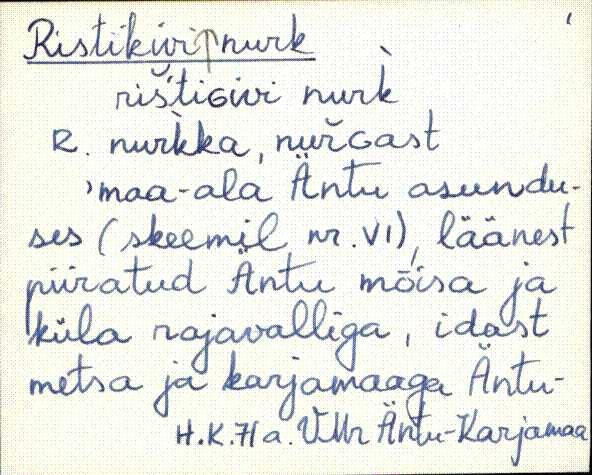 Ristikivi↑nurk
rišʹtiɢivi nurk̀
R. nurk̀ka, nuřɢast
ʾmaa-ala Äntu asundu-
ses (skeemil nr. VI), läänest
piiratud Äntu mõisa ja
küla rajavalliga, idast
metsa ja karjamaaga Äntu-
H.K. 71 a. VMr Äntu-Karjamaa